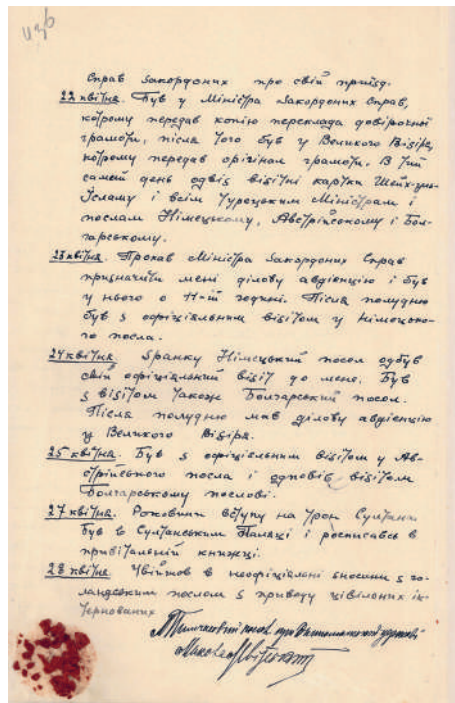 справ закордоних про свій приїзд.
22 квітня. Був у Міністра Закордоних Справ,
котрому передав копію переклада довірочної
грамоти, після чого був у Великого Візіря,
котрому передав орігінал грамоти. В той
самий день одвіз візітні картки Шейх-уль-
Ісламу і всім Турецьким Міністрам і
послам Німецькому, Австрійському і Бол-
гарському.
23 квітня. Прохав Міністра Закордоних Справ
призначити мені ділову авдієнцію і був
у нього о 11-ій годині. Після полудню
був з офіціяльним візітом у Німецько-
го посла.
24 квітня. Зранку Німецький посол одбув
свій офіціяльний візіт до мене. Був
з візітом також Болгарський посол.
Після полудню мав ділову авдієнцію
у Великого Візіря.
25 квітня. Був з офіціяльним візітом у Ав-
стрійського посла і одповів візітом
Болгарському послові.
27 квітня. Роковини вступу на трон Султана
був в Султанським Палаці і росписавсь в
привітальній книжці.
28 квітня Увійшов в неофіціяльні зносини з го-
ландським послом з приводу цівільних ін-
тернованих
Тимчасовий посол при
Микола